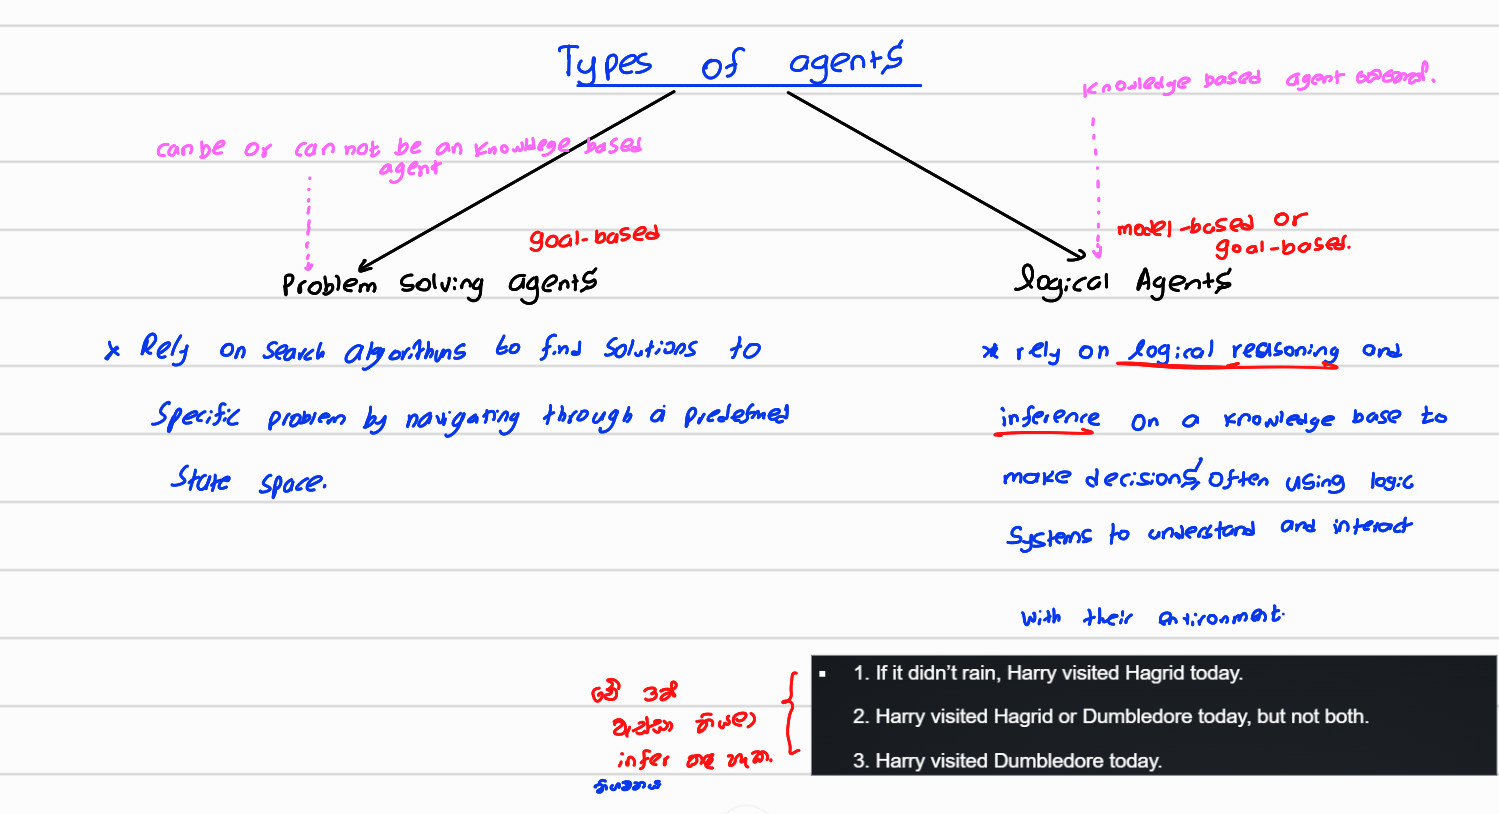 Types of agents
Knowledge based agent
can be or can not be an knowldege based
agent
goal-based
model-based or
goal-based.
Problem solving agents
logical Agents
x Rely on search algorithms to find solutions to
specific problem by navigating through a predefined
state space.
* rely on logical reasoning and
inference on a knowledge base to
make decisions, often using logic
systems to understand and interact
with their environment.
1. If it didn’t rain, Harry visited Hagrid today.
2. Harry visited Hagrid or Dumbledore today, but not both.
3. Harry visited Dumbledore today.
infer